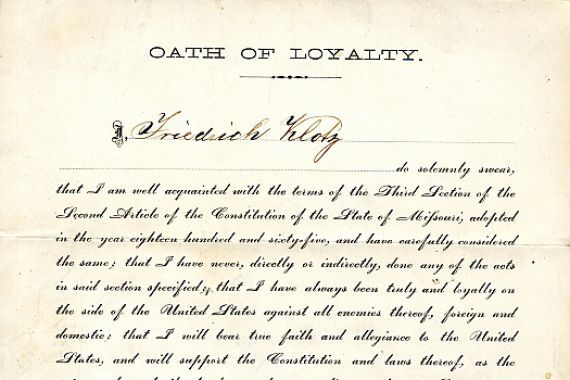 OATH OF LOYALTY.
I, Friedrich Klotz
do solemnly swear,
that I am well acquainted with the terms of the Third Section of the
Second Article of the Constitution of the State of Miſsouri, adopted
in the year eighteen hundred and sixty-five, and have carefully considered
the same; that I have never, directly or indirectly, done any of the acts
in said section specified; that I have always been truly and loyally on
the side of the United States against all enemies thereof, foreign and
domestic; that I will bear true faith and allegiance to the United
States, and will support the Constitution and laws thereof, as the